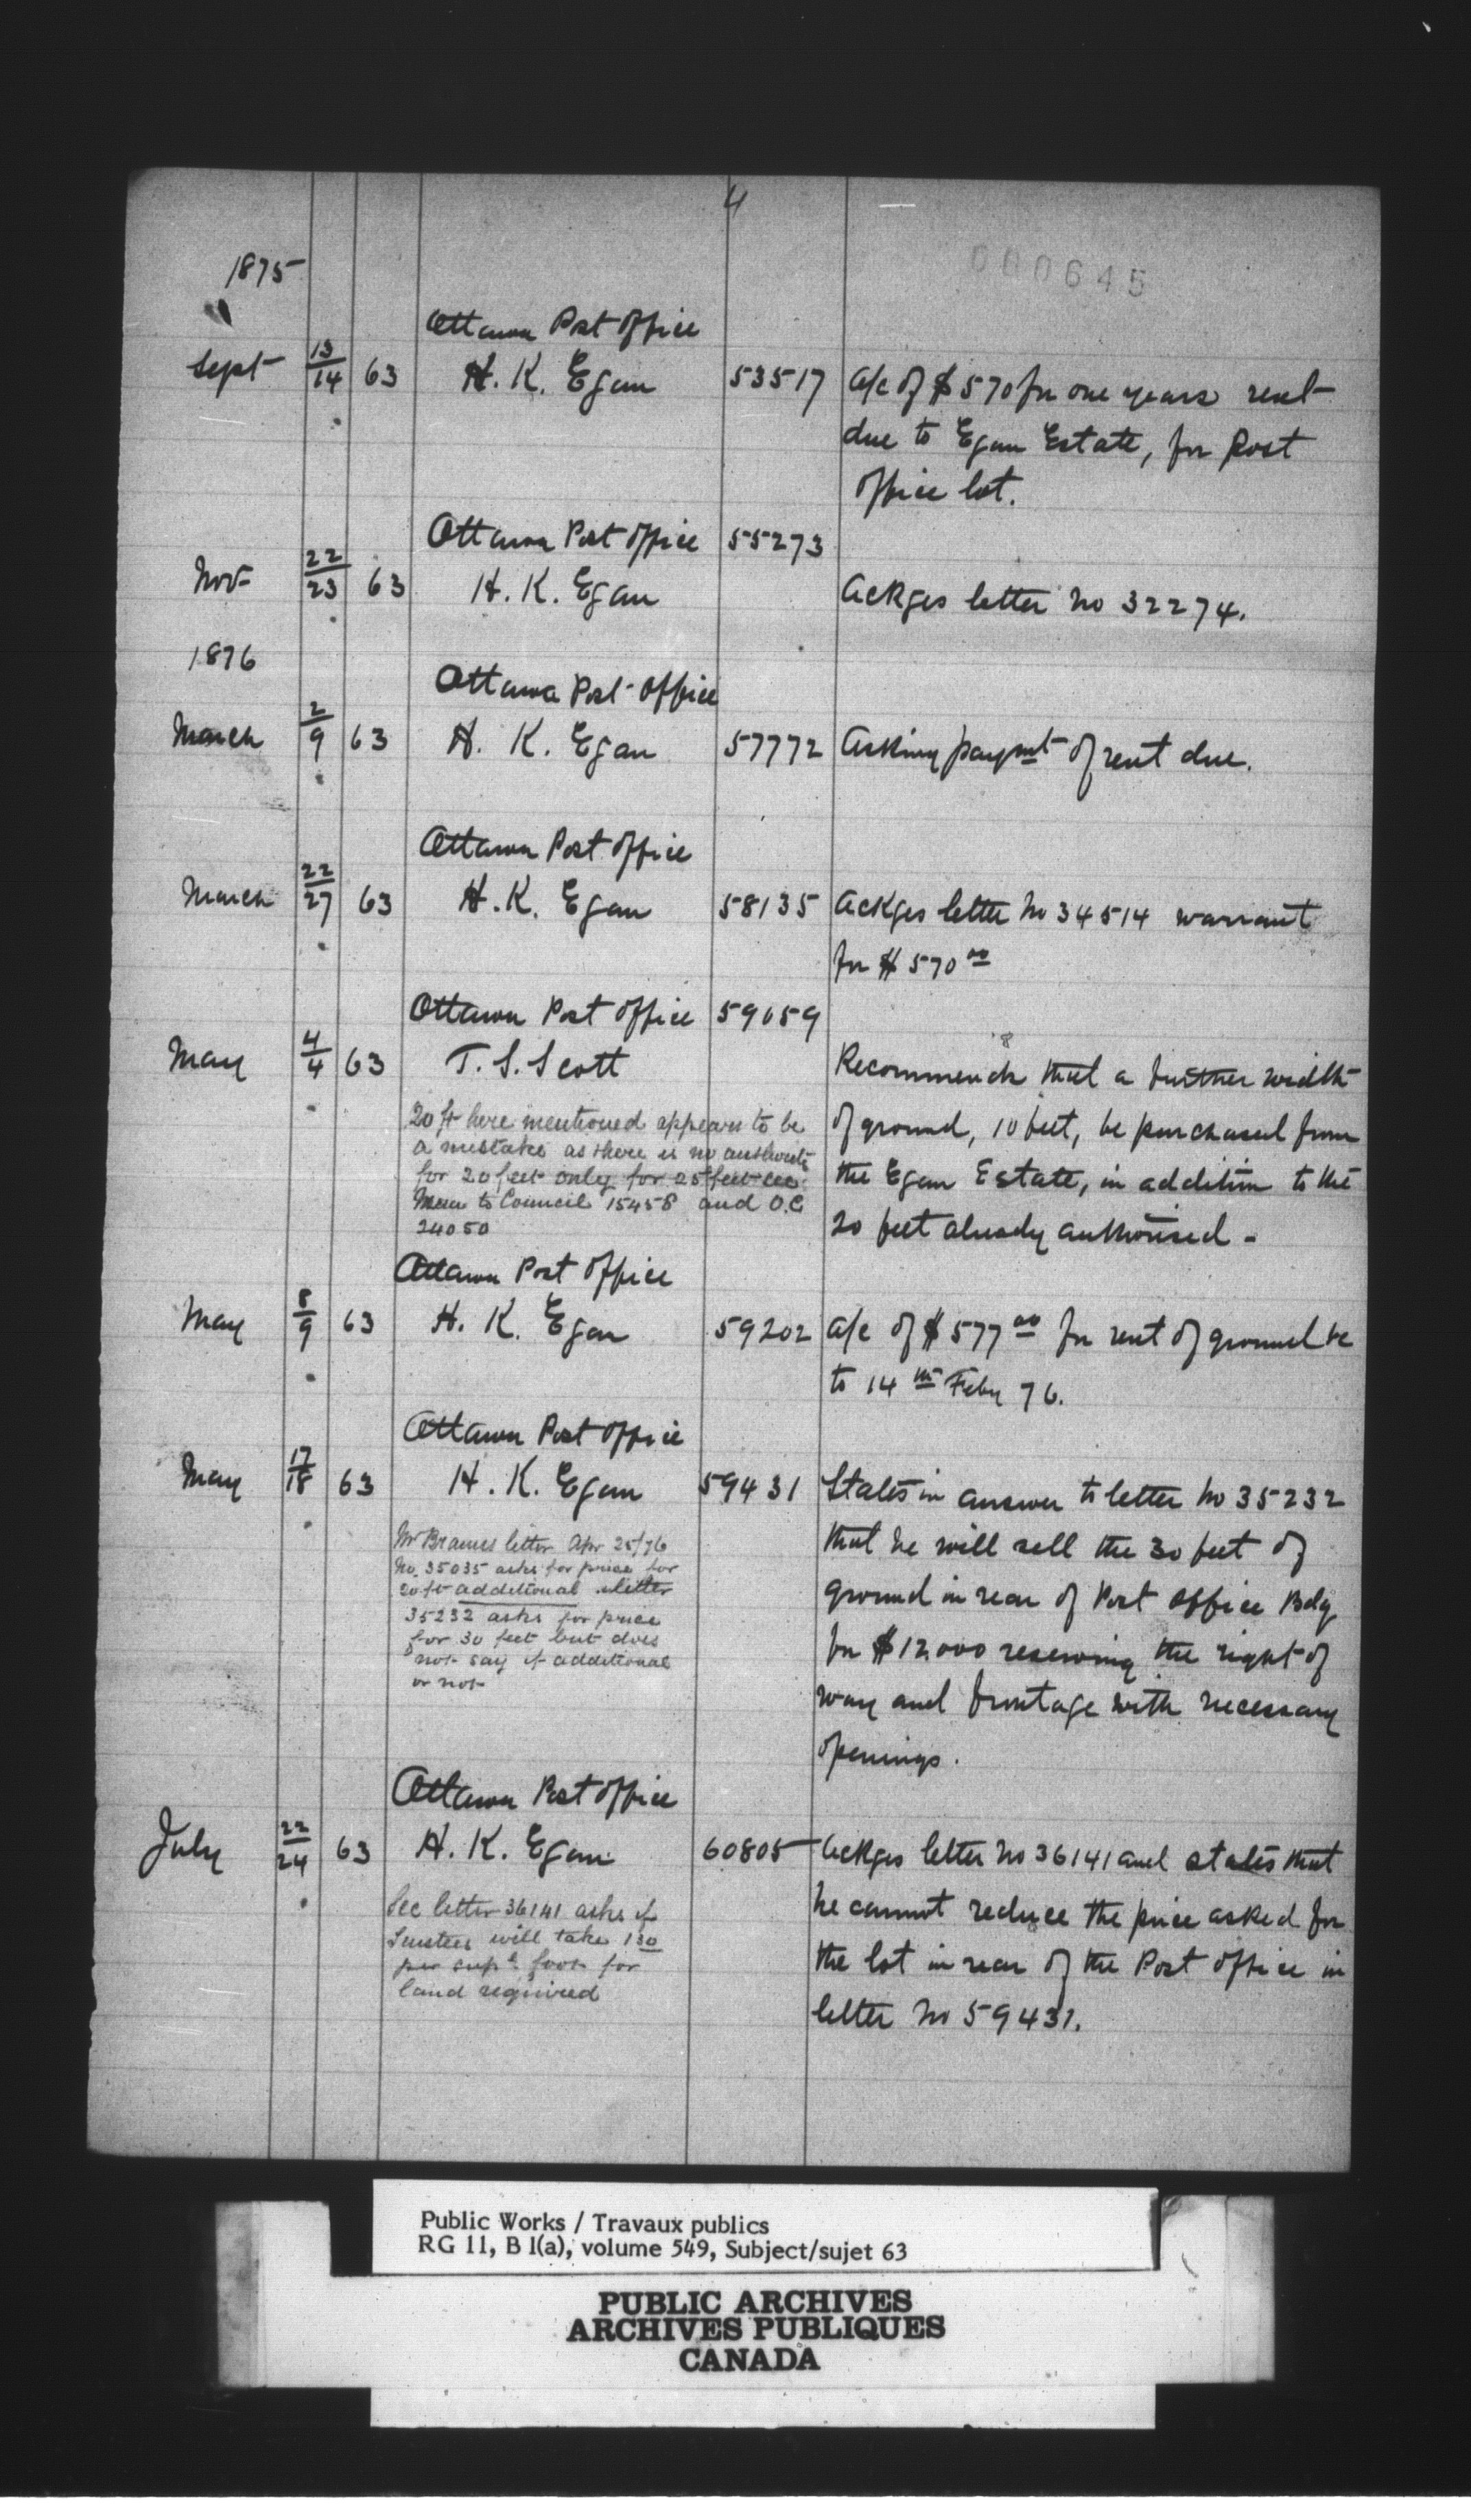 4
000645
1875
Ottawa Post Office
Sept 13/14 63 H. K. Egan 53517 a/c of $570 for one years rent
due to Egan Estate, for Post
Office lot.
Ottawa Post Office 55273
Nov 22/23 63 H. K. Egan Ackges letter No 32274.
1876
Ottawa Post Office
March 2/9 63 H. K. Egan 57772 Asking paymt of rent due.
Ottawa Post Office
March 22/27 63 H. K. Egan 58135 Ackges letter No 34514 warrant
for $570 00
Ottawa Post Office 59059
May 4/4 63 T. S. Scott Recommends that a further width
of ground, 10 feet, be purchased from
the Egan Estate, in addition to the
20 feet already authorised -
20 ft here mentioned appears to be
a mistake as there is no authority
for 20 feet only for 25 feet see
Mem to Council 15458 and O.C
24050
Ottawa Post Office
May 8/9 63 H. K. Egan 59202 a/c of $577 00 for rent of ground &c
to 14 th Feby 76.
Ottawa Post Office
May 17/18 63 H. K. Egan 59431 States in answer to letter No 35232
that he will sell the 30 feet of
ground in rear of Post Office Bdg
for $12.000 reserving the right of
way and frontage with necessary
openings.
Mr Brauns letter Apr 25/76
No. 35035 asks for price for
20 ft additional letter
35232 asks for price
for 30 feet but does
not say if additional
or not
Ottawa Post Office
July 22/24 63 H. K. Egan 60805 Ackges letter No 36141 and states that
he cannot reduce the price asked for
the lot in rear of the Post Office in
letter No 59431.
See letter 36141 asks if
Trustees will take 1 50
per supl foot for
land required
Public Works / Travaux publics
RG 11, B 1(a), volume 549, Subject/sujet 63
PUBLIC ARCHIVES
ARCHIVES PUBLIQUES
CANADA